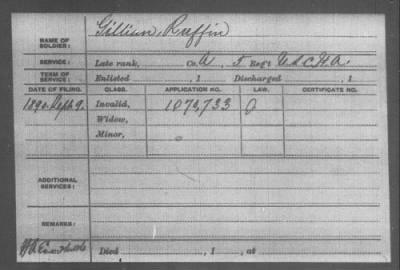 NAME OF SOLDIER: Gilliam, Ruffin
SERVICE: Late rank, Co. A, 5 Reg't U.S.C.H.A.
TERM OF SERVICE: Enlisted , 1 Discharged , 1
DATE OF FILING. CLASS. APPLICATION NO. LAW. CERTIFICATE NO.
1890. Sept. 9. Invalid, 1072,733
Widow,
Minor,
ADDITIONAL SERVICES:
REMARKS:
Died , 1 , at